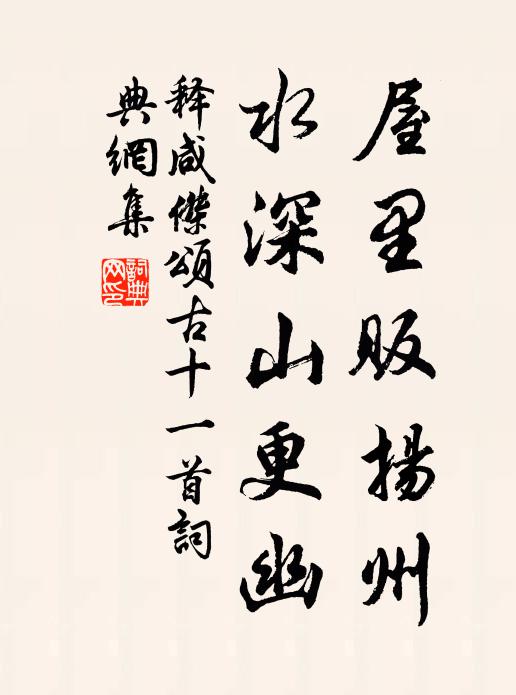 屋里販揚州
水深山更幽
释咸傑頌古十一首詞
典網集
詞典
网印